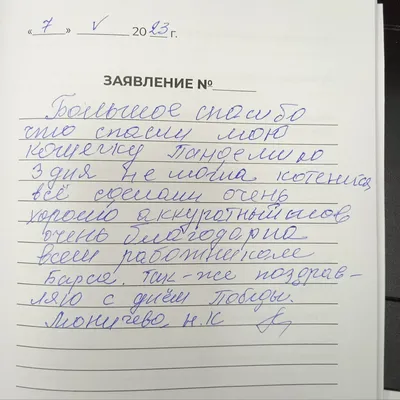 «7» V 2023 г.
ЗАЯВЛЕНИЕ №
Большое спасибо
что спасли мою
кошечку Пандемию
3 дня не могла котениться
всё сделали очень
хорошо аккуратный шов
очень благодарна
всем работникам
Барса. Так-же поздрав-
ляю с днём Победы.
Моничева Н.К